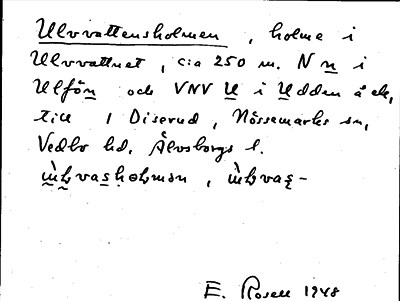 Ulvvattensholmen, holme i
Ulvvattnet, c:a 250 m. N n i
Ulfön och VNV U i Udden å ek,
till 1 Diserud, Nössemarks sn,
Vedbo hd, Älvsborgs l.
E. Rosell 1948